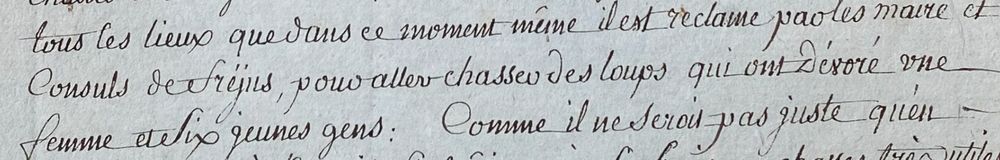 tous les lieux que dans ce moment même il est réclamé par les maire et
Consuls de fréjus, pour aller chasser des loups qui ont dévoré une
femme et six jeunes gens. Comme il ne seroit pas juste qu'en